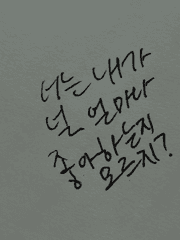 너는 내가
널 얼마나
좋아하는지
모르지?